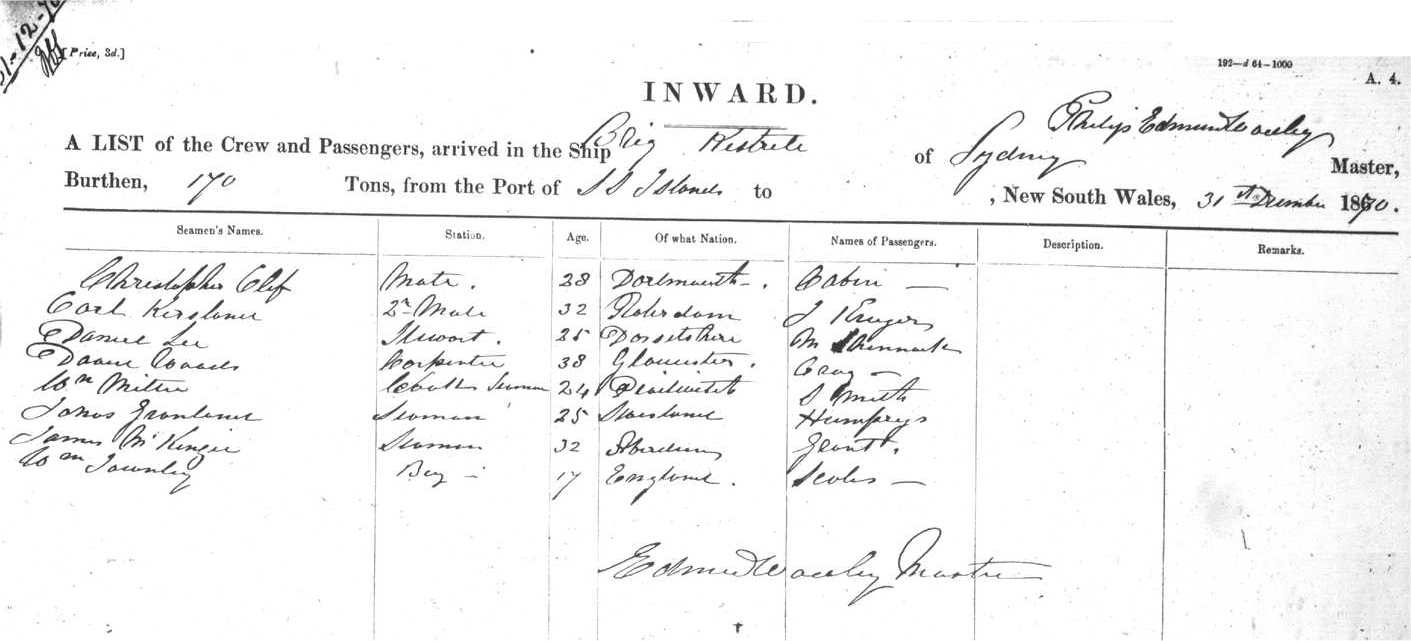 31-12-70
[Price, 3d.]
192—d 64—1000
A. 4.
INWARD.
A LIST of the Crew and Passengers, arrived in the Ship Brig Kestrele of Sydney Philip Edmund Master,
Burthen, 170 Tons, from the Port of S S Islands to , New South Wales, 31st December 1870.
Seamen's Names. Station. Age. Of what Nation. Names of Passengers. Description. Remarks.
Christopher Mate. 28 Dartmouth. Cabin —
Carl 2nd Mate 32 Roterdam J Kruger
Daniel Lee Stewart. 25 Dorsetshire M
Carpenter 38 Gloucester. Cray —
Wm Seaman 24 S Smith
Seaman 25 Humfrys
James McKenzie Seaman 32 Aberdeen Grant.
Wm Townley Boy — 17 England. Scoles —
Edmund Master